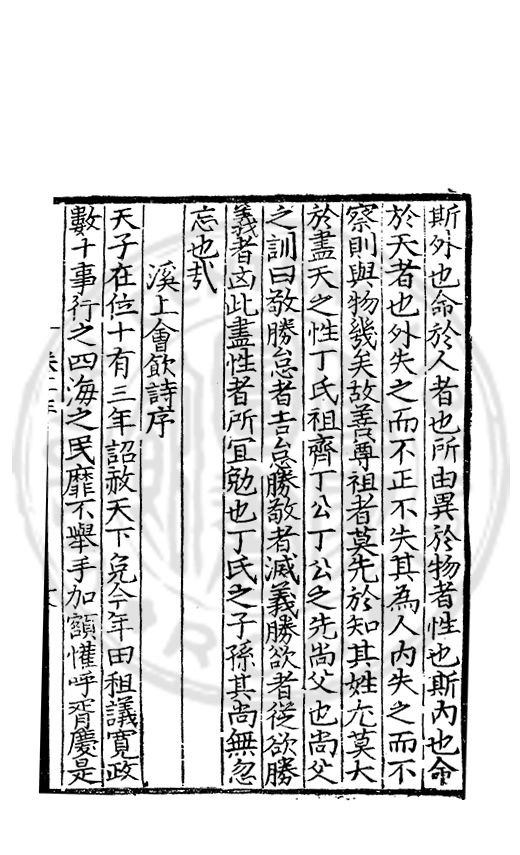 斯外也命於人者也所由異於物者性也斯內也命
於天者也外失之而不正不失其為人內失之而不
察則與物幾矣故善尊祖者莫先於知其姓尤莫大
於盡天之性丁氏祖齊丁公丁公之先尚父也尚父
之訓曰敬勝怠者吉怠勝敬者滅義勝欲者從欲勝
義者凶此盡性者所宜勉也丁氏之子孫其尚無忽
忘也㢤
溪上會飲詩序
天子在位十有三年詔赦天下免今年田租議寬政
數十事行之四海之民靡不舉手加額懽呼胥慶是